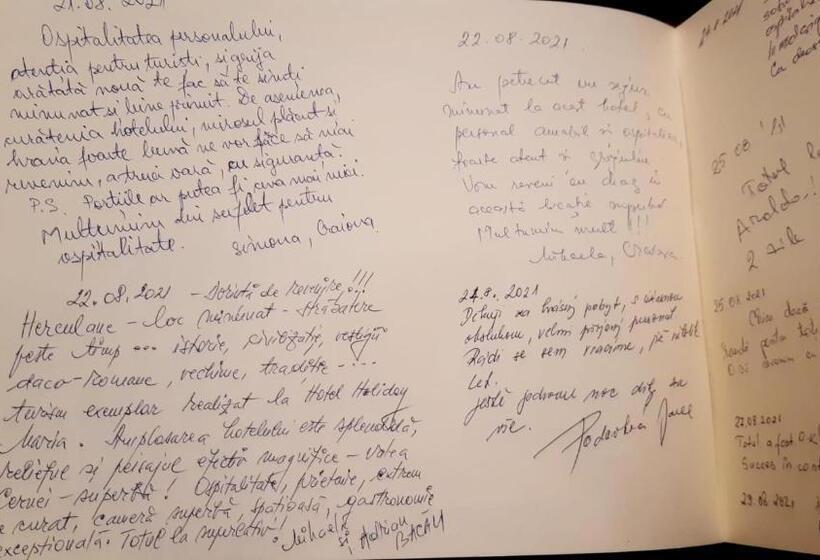 21.08.2021
Ospitalitatea personalului,
atenția pentru turiști, și grija
arătată nouă te fac să te simți
minunat și bine primit. De asemenea,
curățenia hotelului, mirosul plăcut și
hrana foarte bună ne vor face să mai
revenim, a treia oară, cu siguranță.
P.S. Porțiile ar putea fi ceva mai mici.
Mulțumim din suflet pentru
ospitalitate. Simona, Craiova
22.08.2021 - Dorință de revenire!!!
Herculane - loc minunat - străbatere
peste timp ... istorie, civilizație, vestigii
daco-romane, vechime, tradiție - ...
turism exemplar realizat la Hotel Holiday
Maria. Amplasarea hotelului este splendidă,
relieful și peisajul efectiv magnifice - valea
Cernei - superbă! Ospitalitate, prietenie, extrem
de curat, cameră superbă, spațioasă, gastronomie
excepțională. Totul la superlativ! Mihaela
și Adrian
BACĂU
22.08.2021
Am petrecut un sejur
minunat la acest hotel, cu
personal amabil și ospitalier,
foarte atent și grijuliu.
Vom reveni cu drag în
această locație superbă
Mulțumim mult !!!
Mihaela, Craiova
24.8.2021
Děkuji za krásný pobyt, s úžasnou
obsluhou, velmi příjemný personál
Rádi se sem vracíme,
let.
Ještě jednou moc díky za
vše.
25.08
Totul
2 zile
25.08.2021
27.08.2021
Totul a fost O.K.
Succes în
29.08.2021